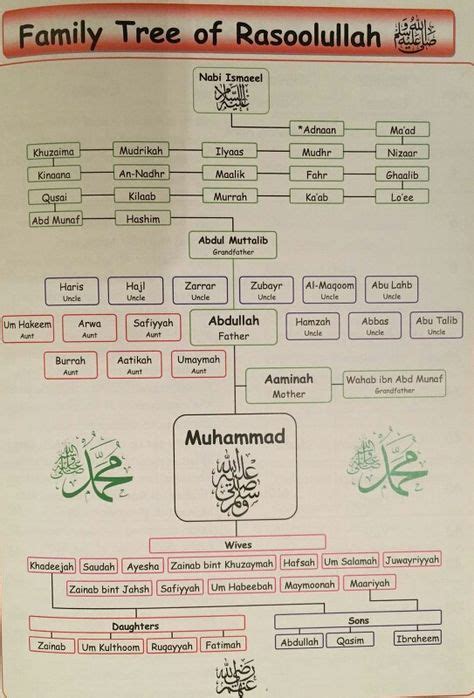 Family Tree of Rasoolullah صلى الله عليه وسلم
Nabi Ismaeel
عليه السلام
*Adnaan Ma'ad
Khuzaima Mudrikah Ilyaas Mudhr Nizaar
Kinaana An-Nadhr Maalik Fahr Ghaalib
Qusai Kilaab Murrah Ka'ab Lo'ee
Abd Munaf Hashim
Abdul Muttalib
Grandfather
Haris Hajl Zarrar Zubayr Al-Maqoom Abu Lahb
Uncle Uncle Uncle Uncle Uncle Uncle
Um Hakeem Arwa Safiyyah Abdullah Hamzah Abbas Abu Talib
Aunt Aunt Aunt Father Uncle Uncle Uncle
Burrah Aatikah Umaymah
Aunt Aunt Aunt
Aaminah Wahab ibn Abd Munaf
Mother Grandfather
Muhammad
صلى الله عليه وسلم
محمد صلى الله عليه وسلم
محمد صلى الله عليه وسلم
Wives
Khadeejah Saudah Ayesha Zainab bint Khuzaymah Hafsah Um Salamah Juwayriyyah
Zainab bint Jahsh Safiyyah Um Habeebah Maymoonah Maariyah
Daughters Sons
Zainab Um Kulthoom Ruqayyah Fatimah Abdullah Qasim Ibraheem
رضي الله عنهم